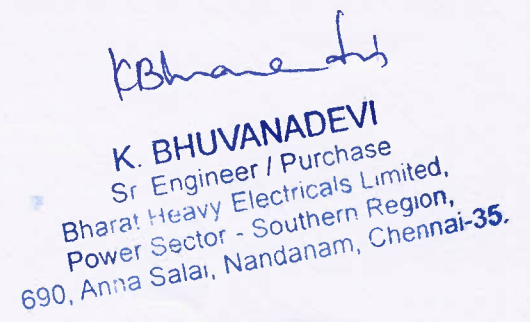 KBhuvanadevi
K. BHUVANADEVI
Sr Engineer / Purchase
Bharat Heavy Electricals Limited,
Power Sector - Southern Region,
690, Anna Salai, Nandanam, Chennai-35.